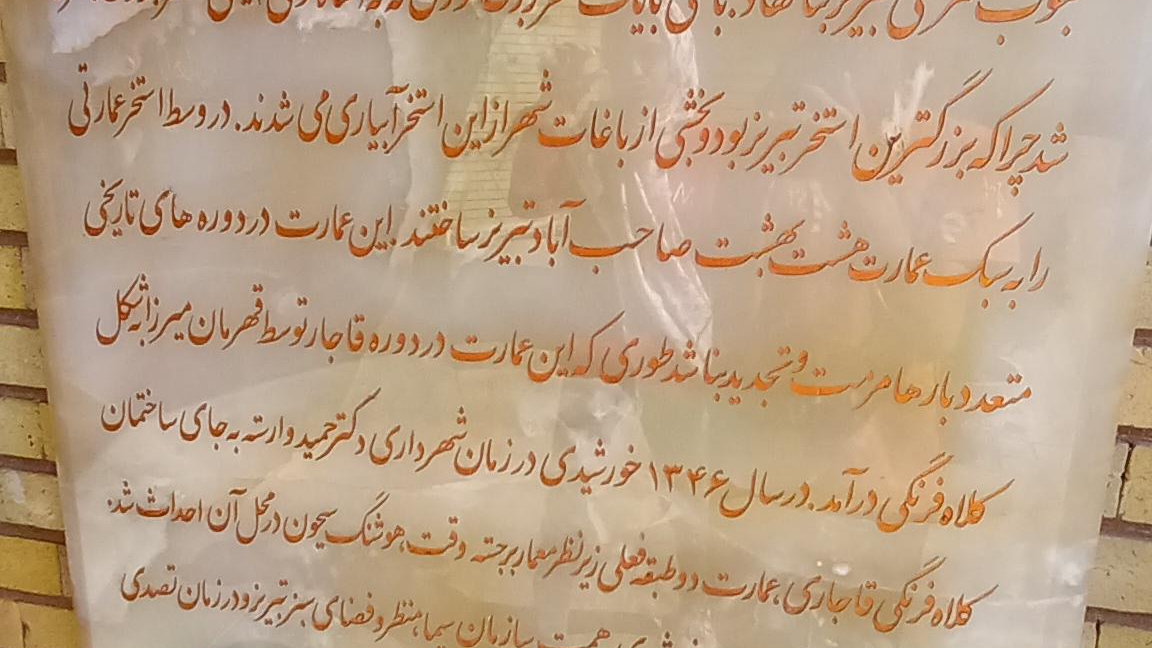 جنوب شرقی تبریز بنا نهاد.
شد چرا که بزرگترین استخر تبریز بود و بخشی از باغات شهر از این استخر آبیاری می شدند. در وسط استخر عمارتی
را به سبک عمارت هشت بهشت صاحب آباد تبریز ساختند. این عمارت در دوره های تاریخی
متعدد بارها مرمت و تجدید بنا شد طوری که این عمارت در دوره قاجار توسط قهرمان میرزا به شکل
کلاه فرنگی درآمد. در سال ۱۳۴۶ خورشیدی در زمان شهرداری دکتر حمید وارسته به جای ساختمان
کلاه فرنگی قاجاری، عمارت دو طبقه فعلی زیر نظر معمار برجسته وقت، هوشنگ سیحون در محل آن احداث شد.
همت سازمان سیما، منظر و فضای سبز تبریز و در زمان تصدی